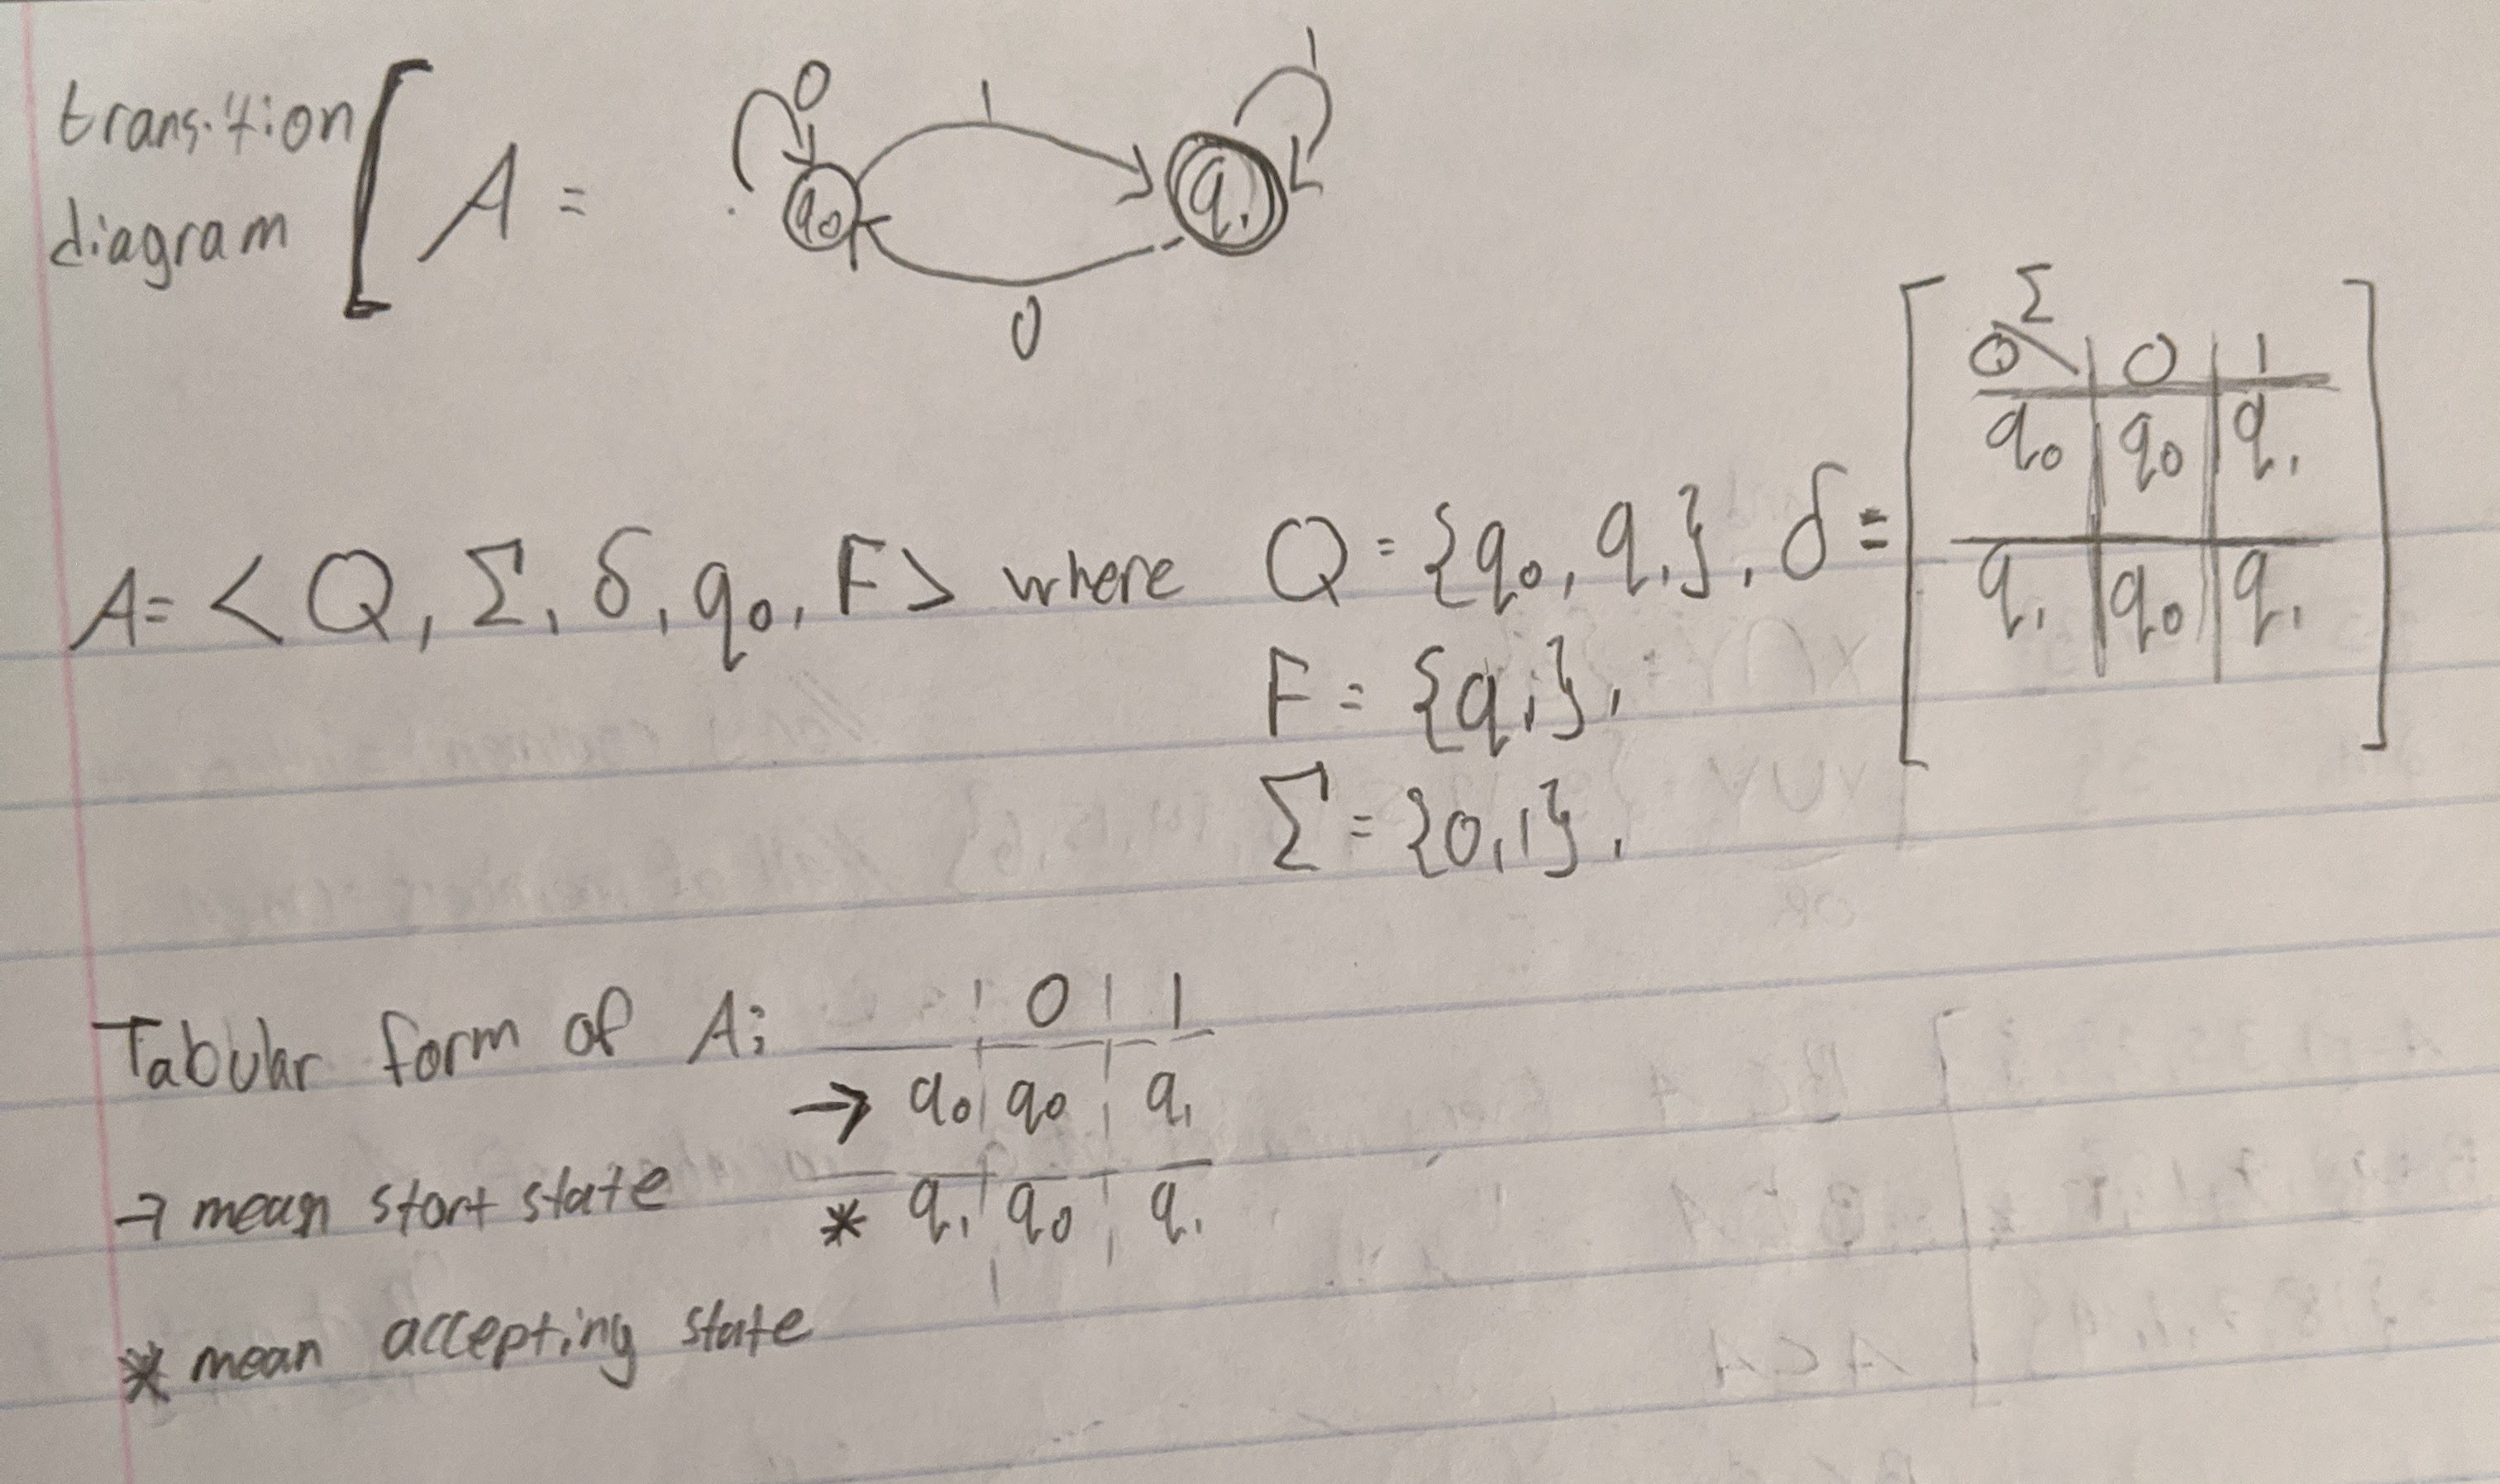 transition
diagram
A =
0
1
1
q₀
q₁
0
Σ
Q 0 1
q₀ q₀ q₁
q₁ q₀ q₁
A = < Q, Σ, δ, q₀, F > where Q = {q₀, q₁}, δ =
F = {q₁},
Σ = {0,1},
Tabular form of A:
0 1
→ q₀ q₀ q₁
* q₁ q₀ q₁
→ mean start state
* mean accepting state